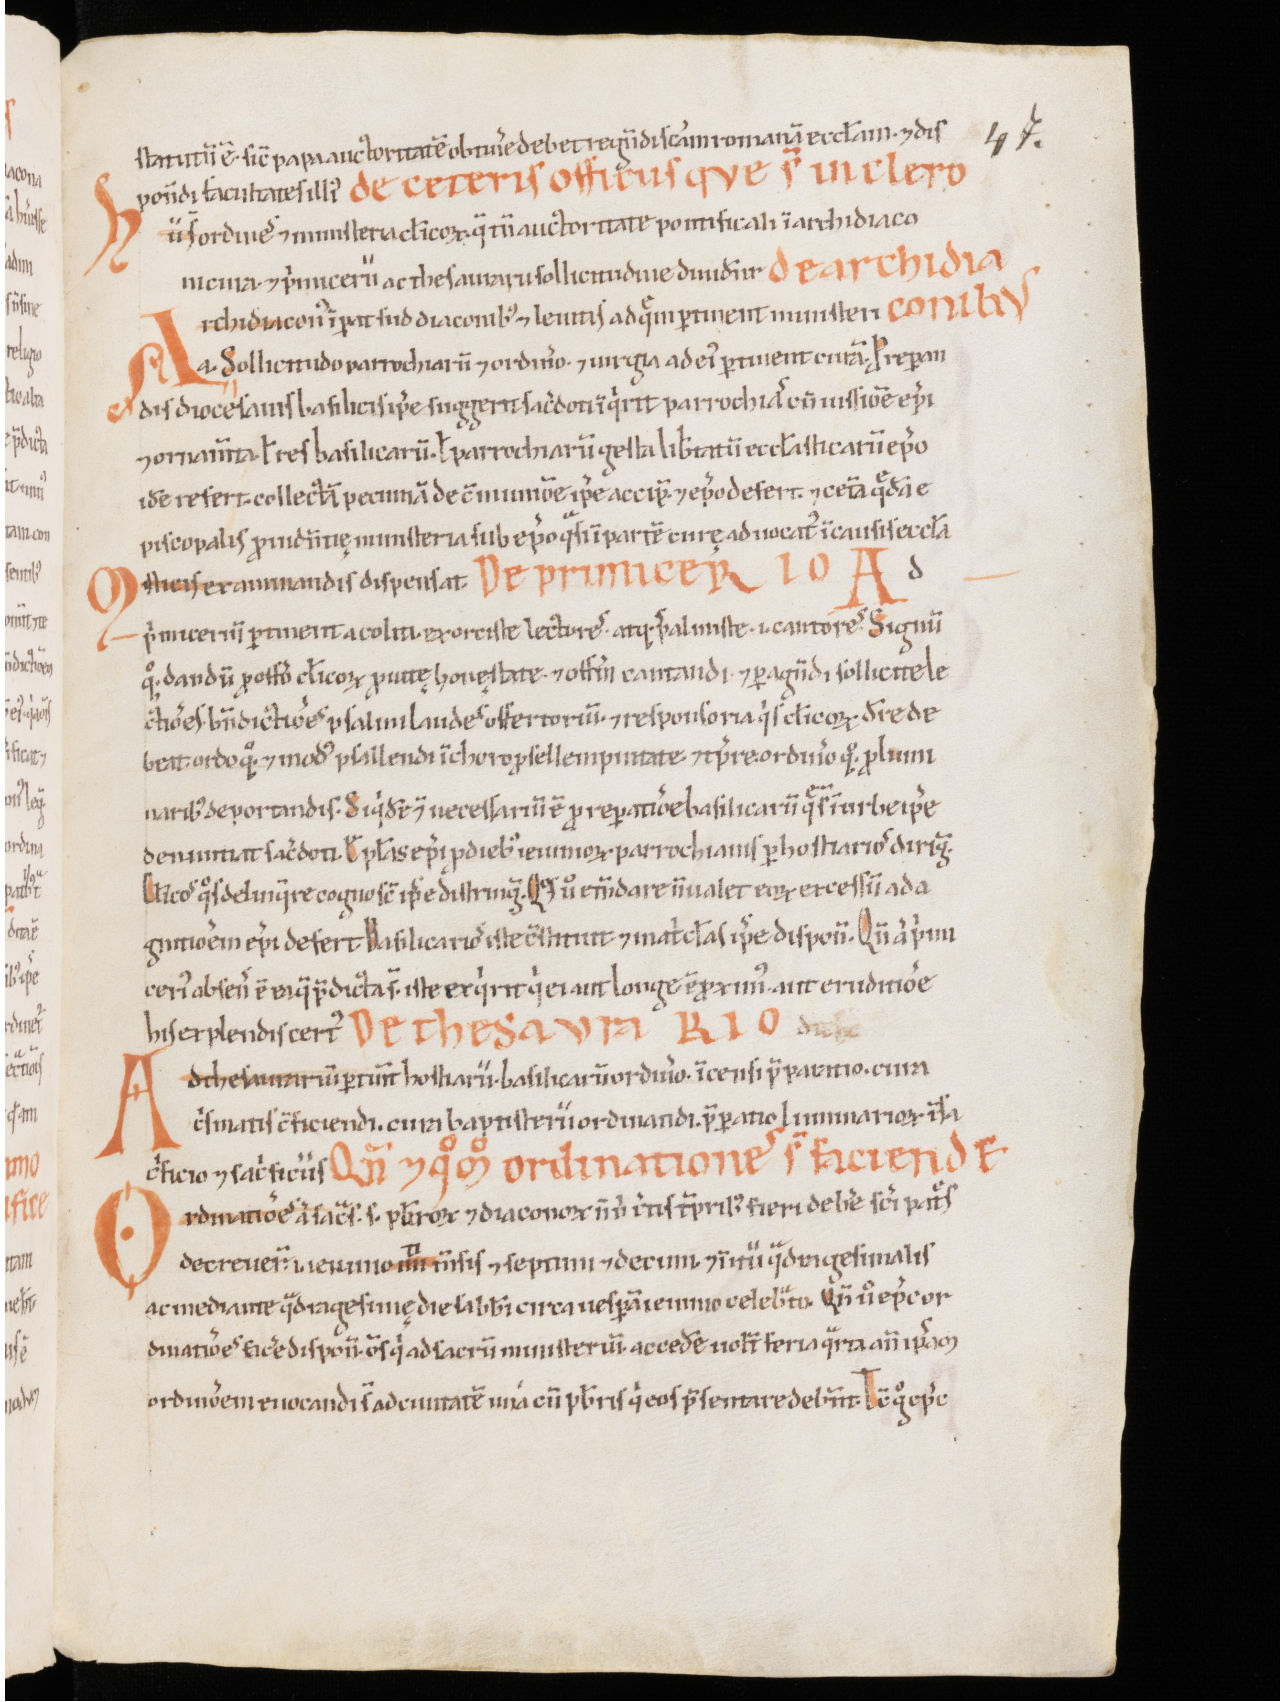 47.
statutū ē. sic̄ papa auctoritatē obtinr̄e debet regn̄di sc̄am romanā eccl̄am. ⁊ dis
pon̄di facultates illiꝰ de ceteris officiis que s̄ in clero
ordines ⁊ ministeria cl̄icoꝝ. q̄ tn̄ auctoritate pontificali ī archidiaco
ni cura. ⁊ p̄micerii ac thesaurarii sollicitudine dividūr de archidia
Archidiaconꝰ īperat subdiaconibꝰ ⁊ levitis ad quē ꝑtinent ministeri conibus
a. Sollicitudo parrochiarū ⁊ ordinō. ⁊ iurgia ad eiꝰ ꝑtinent curā. reparan
dis diocesanis basilicis ip̄e suggerit sac̄doti īqirit parrochias cū iussiōe ep̄i
⁊ ornam̄ta. ł res basilicarū. ł parrochiarū gesta lib̄tatū eccl̄asticarū ep̄o
idē refert. collectā pecuniā de c̄muniōe ip̄e accip̄. ⁊ ep̄o defert. ⁊ cet̄a q̄dā e
piscopalis ꝓvid̄ntię ministeria sub ep̄o quasi ī partē curę advocatꝰ ī causis eccl̄a
sticis examinandis dispensat De primiceR IO Ad
p̄micerū ꝑtinent acoliti. exorciste lectores. atq; psalmiste. .i. cantores. Signū
qꝫ. dandū ꝓ offō cl̄icoꝝ ꝓ vitę honęstate. ⁊ offm̄ cantandi. ⁊ ꝑagn̄di sollicite le
ctiōes. bn̄dictiōes psalmi laudes offertoriū. ⁊ responsoria qis cl̄icoꝝ dr̄e de
beat. ordo qꝫ. ⁊ modꝰ psallendi ī choro ꝓ sellempnitate. ⁊ tp̄re. ordinō qꝫ. ꝓ lumi
naribꝰ deportandis. Siqid ē necessariū ē ꝓ reperatiōe basilicarū que s̄ ī urbe ip̄e
denuntiat sac̄doti. ep̄i ꝓ diebꝰ ieiunioꝝ parrochianis ꝑ hostiarios dirig̃.
Cl̄icos qos delinqire cognosc̄ ip̄e distring̃. Qos v̊ em̄dare n̄ valet eoꝝ excessū ad a
gnitiōem ep̄i defert Basilicarios iste c̄stituit ⁊ mat̄clas ip̄e dispon̄. Qn̄ ā p̄mi
ceriꝰ absens ē ea q̄ p̄dicta s̄. iste exqirit qi ei aut longe ē ꝓximꝰ. aut eruditiōe
his explendis certꝰ De thesaura RIO
Ad thesaurariū ꝑtin̄t hostiarii. basilicarū ordinō. īcensi p̄paratio. cura
c̄smatis c̄ficiendi. cura baptisterii ordinandi. p̄ꝑatio luminarioꝝ ī sa
c̄ficio ⁊ sac̄ficiis Qn̄ ⁊ qōm ordinationes s̄ faciendE
Ordinatiōes ā sac̄s. s. pbr̄oꝝ ⁊ diaconoꝝ nn̄ c̄tis tp̄ribꝰ fieri debr̄e sc̄i patres
decrever̄. i. ieiunio iiii ti m̄sis ⁊ septimi ⁊ decimi. ⁊ initiū q̄dragesimalis
ac mediante q̄dragesimę die sabb̄i circa vesꝑā ieiunio celebrato. Qn̄ v̊ ep̄c or
dinatiōes facr̄e dispon̄. om̄s qi ad sacrū ministeriū. accedr̄e volt̄ feria qarta an̄ ip̄am
ordinōem evocandi s̄ ad civitatē una cū pbr̄is qi eos p̄sentare debn̄t. Tc̄ ep̄c